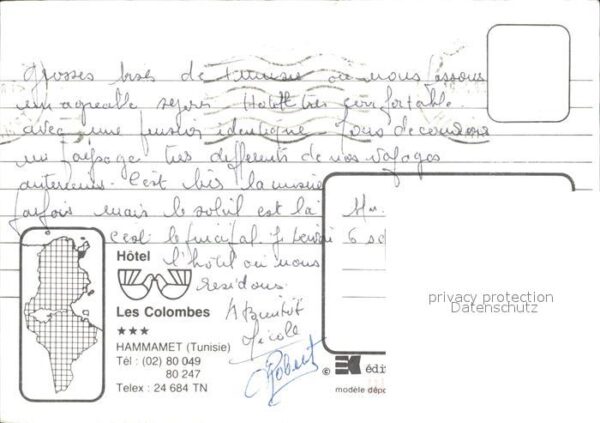 grosses bises de Tunisie où nous passons
un agreable sejour. Hotel très confortable
avec une pension identique. Nous decouvrons
un paysage tres differents de nos voyages
anterieurs. C'est bien la
parfois mais le soleil est là
c'est le principal. 6
l'hôtel où nous
residons.
A Bientôt
Nicole
Robert
Hôtel
Les Colombes
★★★
HAMMAMET (Tunisie)
Tél : (02) 80 049
80 247
Telex : 24 684 TN
© édi
modèle dépo
privacy protection
Datenschutz